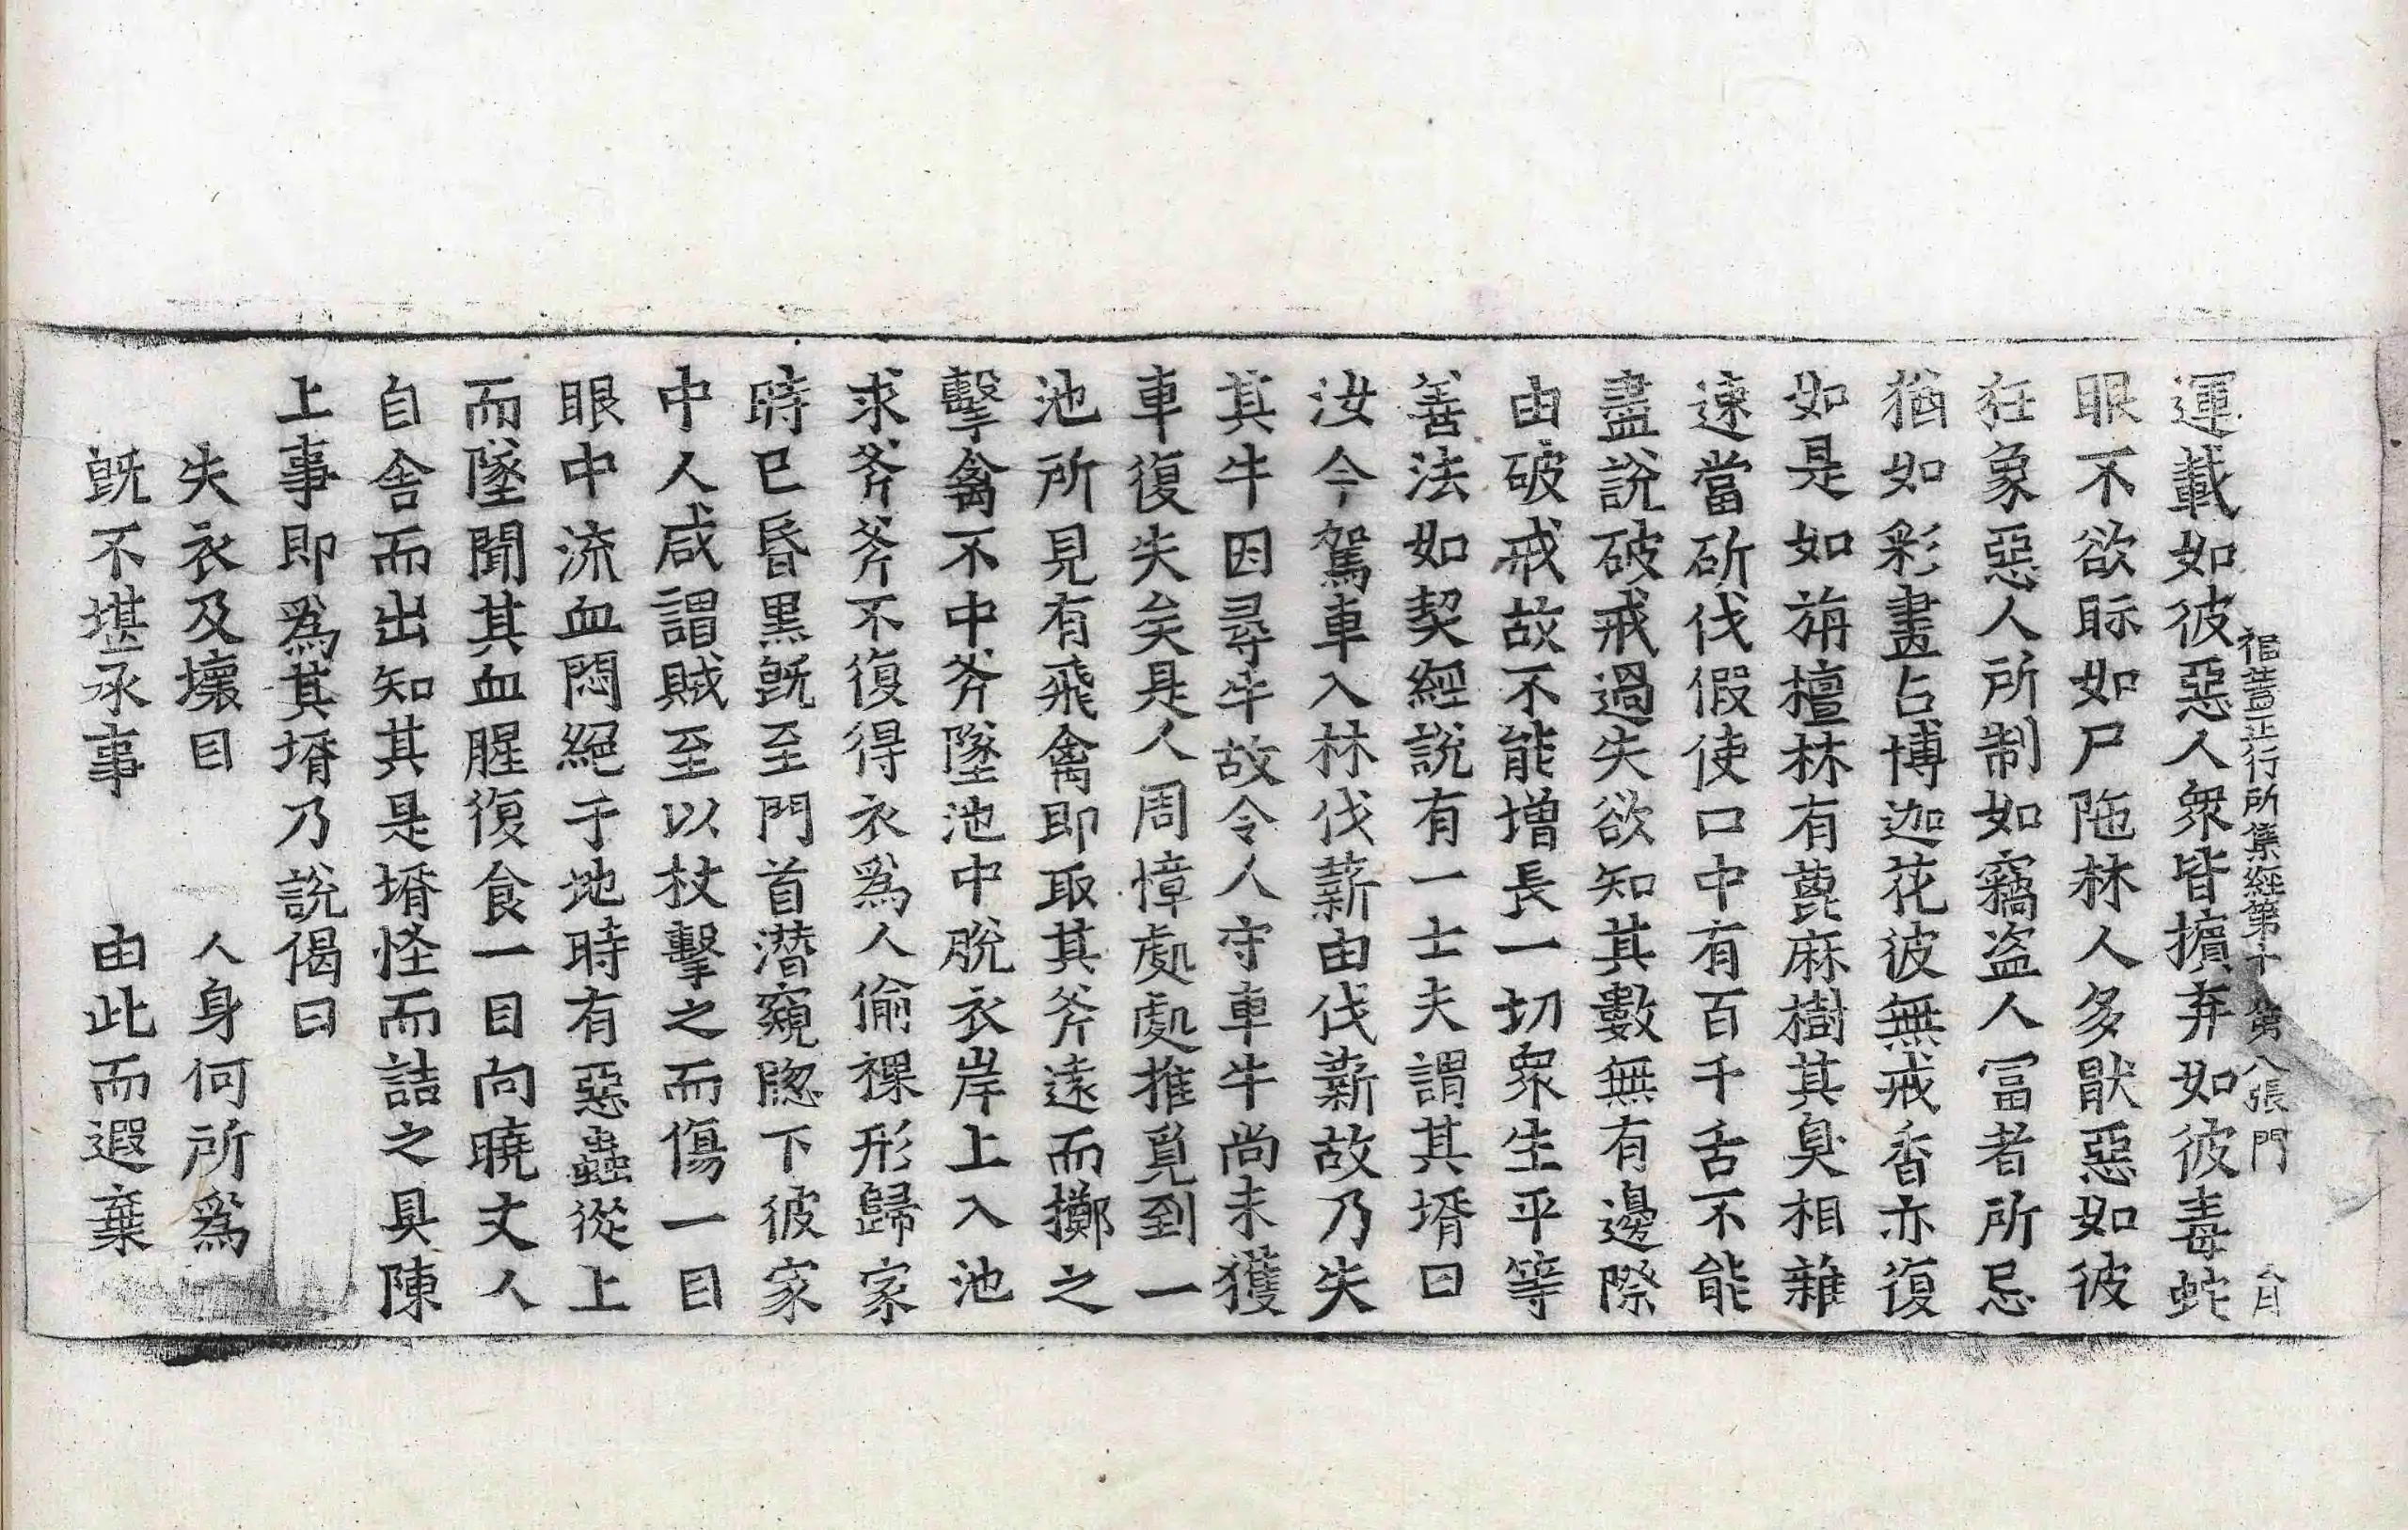 福蓋正行所集經第十 第八張 門
運載如彼惡人衆皆擯弃如彼毒蛇
眼不欲眎如尸陁林人多猒惡如彼
狂象惡人所制如竊盗人冨者所忌
猶如彩畫占博迦花彼無戒香亦復
如是如旃檀林有蓖麻樹其臭相雜
速當斫伐假使口中有百千舌不能
盡說破戒過失欲知其數無有邊際
由破戒故不能增長一切衆生平等
善法如契經說有一士夫謂其壻曰
汝今駕車入林伐薪由伐薪故乃失
其牛因尋牛故令人守車牛尚未獲
車復失矣是人周慞處處推覓到一
池所見有飛禽即取其斧遠而擲之
擊禽不中斧墜池中脫衣岸上入池
求斧斧不復得衣爲人偷裸形歸家
時已昏黑旣至門首潛窺牕下彼家
中人咸謂賊至以杖擊之而傷一目
眼中流血悶絕于地時有惡蟲從上
而墜聞其血腥復食一目向曉丈人
自舍而出知其是壻怪而詰之具陳
上事即爲其壻乃說偈曰
失衣及壞目 人身何所爲
旣不堪承事 由此而遐棄